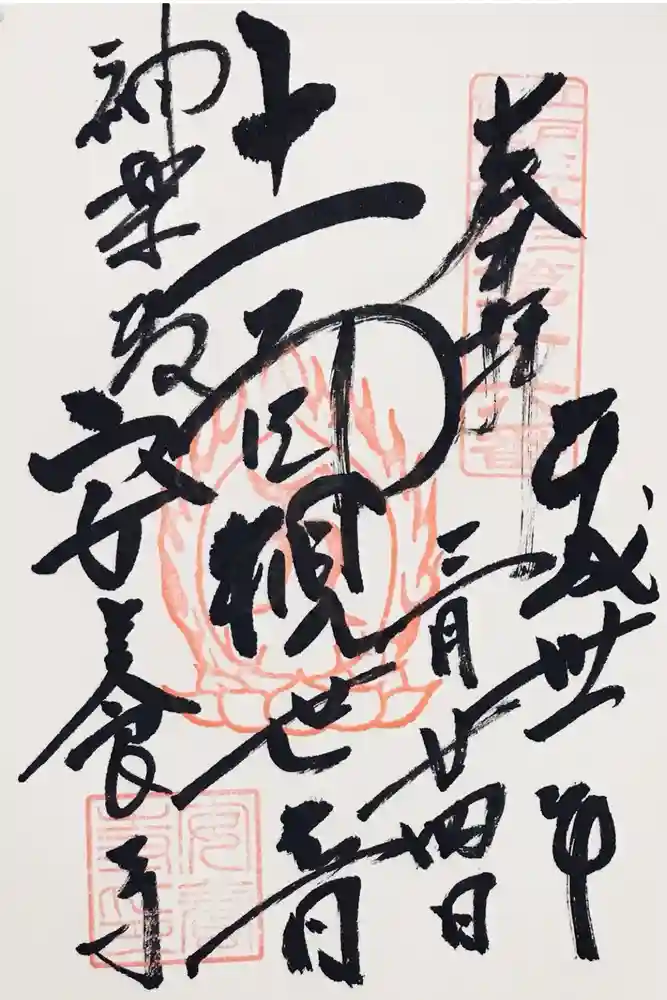 奉拝
平成卅一年
三月廿四日
十一面観世音
神楽坂
安養寺